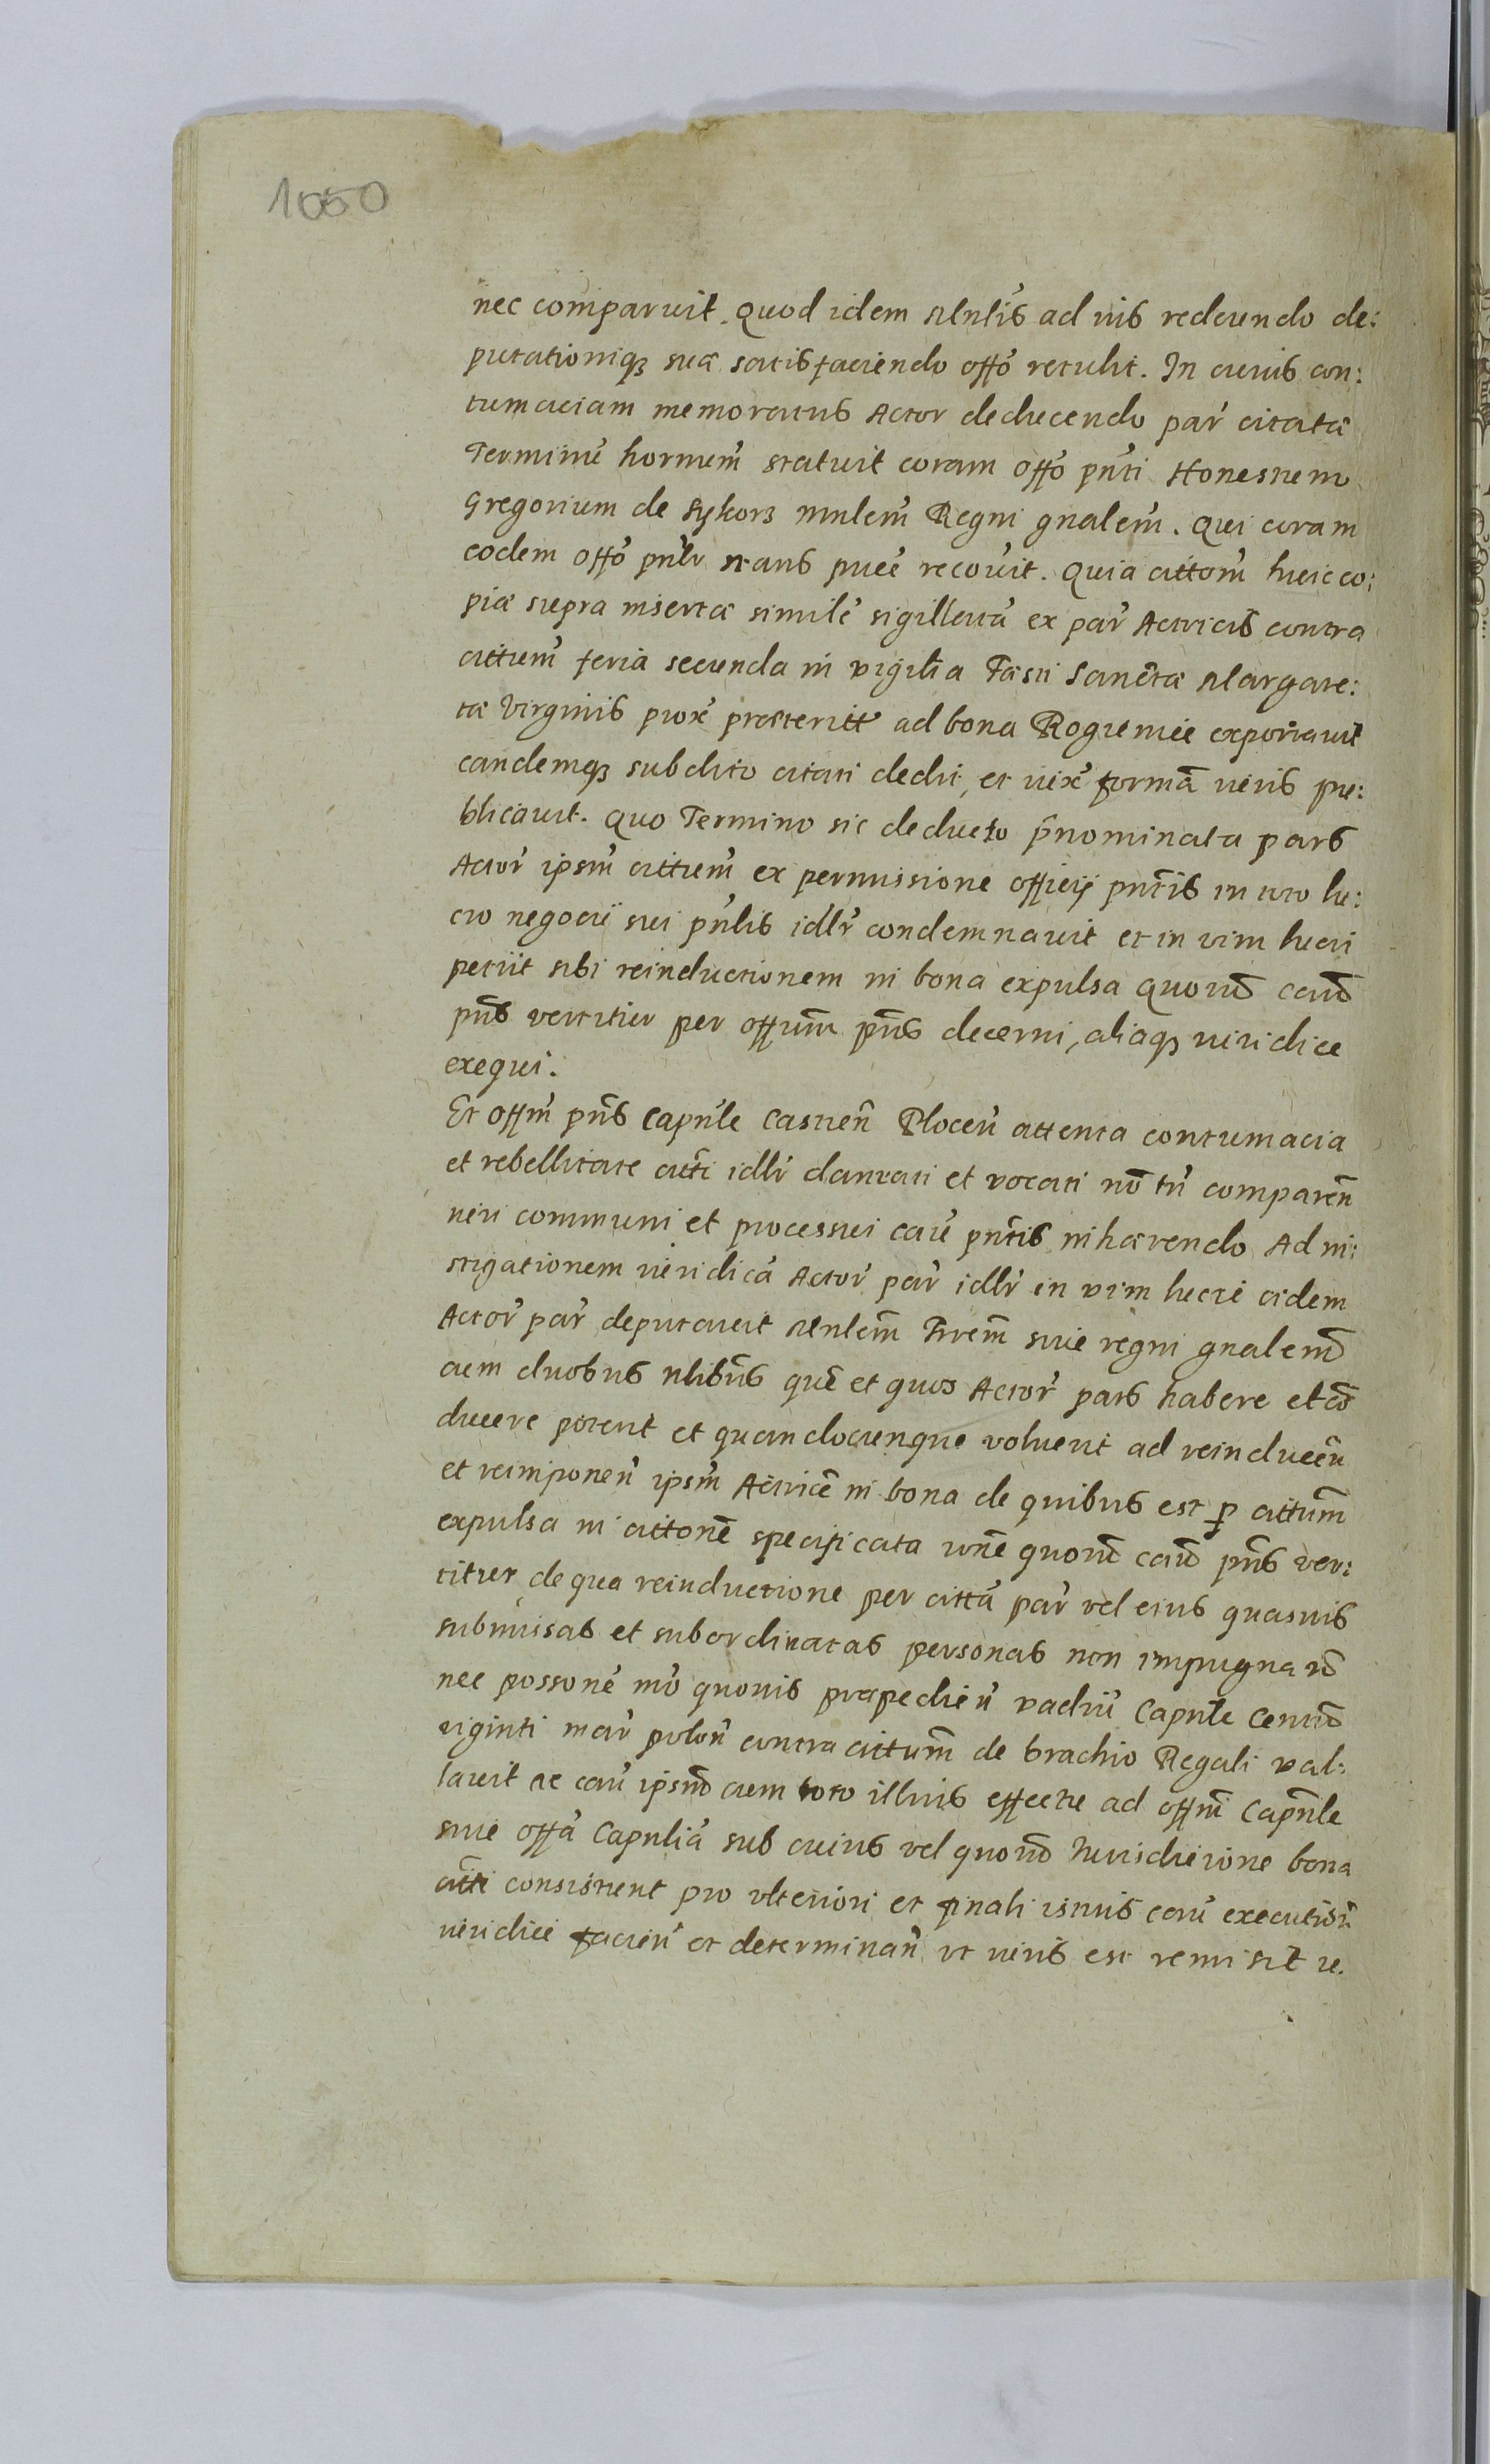 1050
nec comparuit. Quod idem Mnlis ad nis redeundo de:
putationiq3 suæ satisfaciendo offo retulit. In cuius con:
tumaciam memoratus Actor deducendo par citatæ
Terminũ hornum statuit coram offo pnti Honestum
Gregorium de Sykorz Mnlem Regni gnalem. Qui coram
eodem offo pnlr stans puce recouit. Quia cittom huic co:
piæ supra insertæ simile sigillatã ex par Actricis contra
cittum feria secunda in vigilia Fæsti Sanctæ Margare:
tæ Virginis prox præteritt ad bona Roguemie exportauit
eandemq3 subdito citati dedit, et iux formã iuris pu:
blicauit. Quo Termino sic deducto p̃nominata pars
Actor ipsm cittum ex permissione officij pntis in toto lu:
cro negocii sui pnlis idlr condemnauit et in vim lucri
petiit sibi reinductionem in bona expulsa quorũ caũ
pns vertitur per offum pns decerni, aliaq3 iuridice
exequi.
Et offm pns Capnle Castren Plocen attenta contumacia
et rebellitate citti idlr clamati et vocati nõ tñ comparen
iuri communi et processui caũ pntis inhærendo Ad in:
stigationem iuridicã Actor par idlr in vim lucri eidem
Actor par deputauit Mnlem Trem siue regni gnalem
cum duobus nlibus quẽ et quos Actor pars habere et cõ
ducere poterit et quandocunque voluerit ad reinducen
et reimponen ipsm Actricẽ in bona de quibus est p cittum
expulsa in cittone specificata rõne quorũ caũ pns ver:
titur de qua reinductione per cittã par vel eius quasuis
submissas et subordinatas personas non impugnañ
nec possone mõ quouis præpedien vadiũ Capnle Centũ
viginti mar polon contra cittum de brachio Regali val:
lauit ac caũ ipsam cum toto illius effectu ad offm Capnle
siue offa Capnliã sub cuius vel quorũ Iurisdictione bona
citti consistent pro vlteriori et finali istius caũ execution
iuridice facien et determinan vt iuris est remisit re.